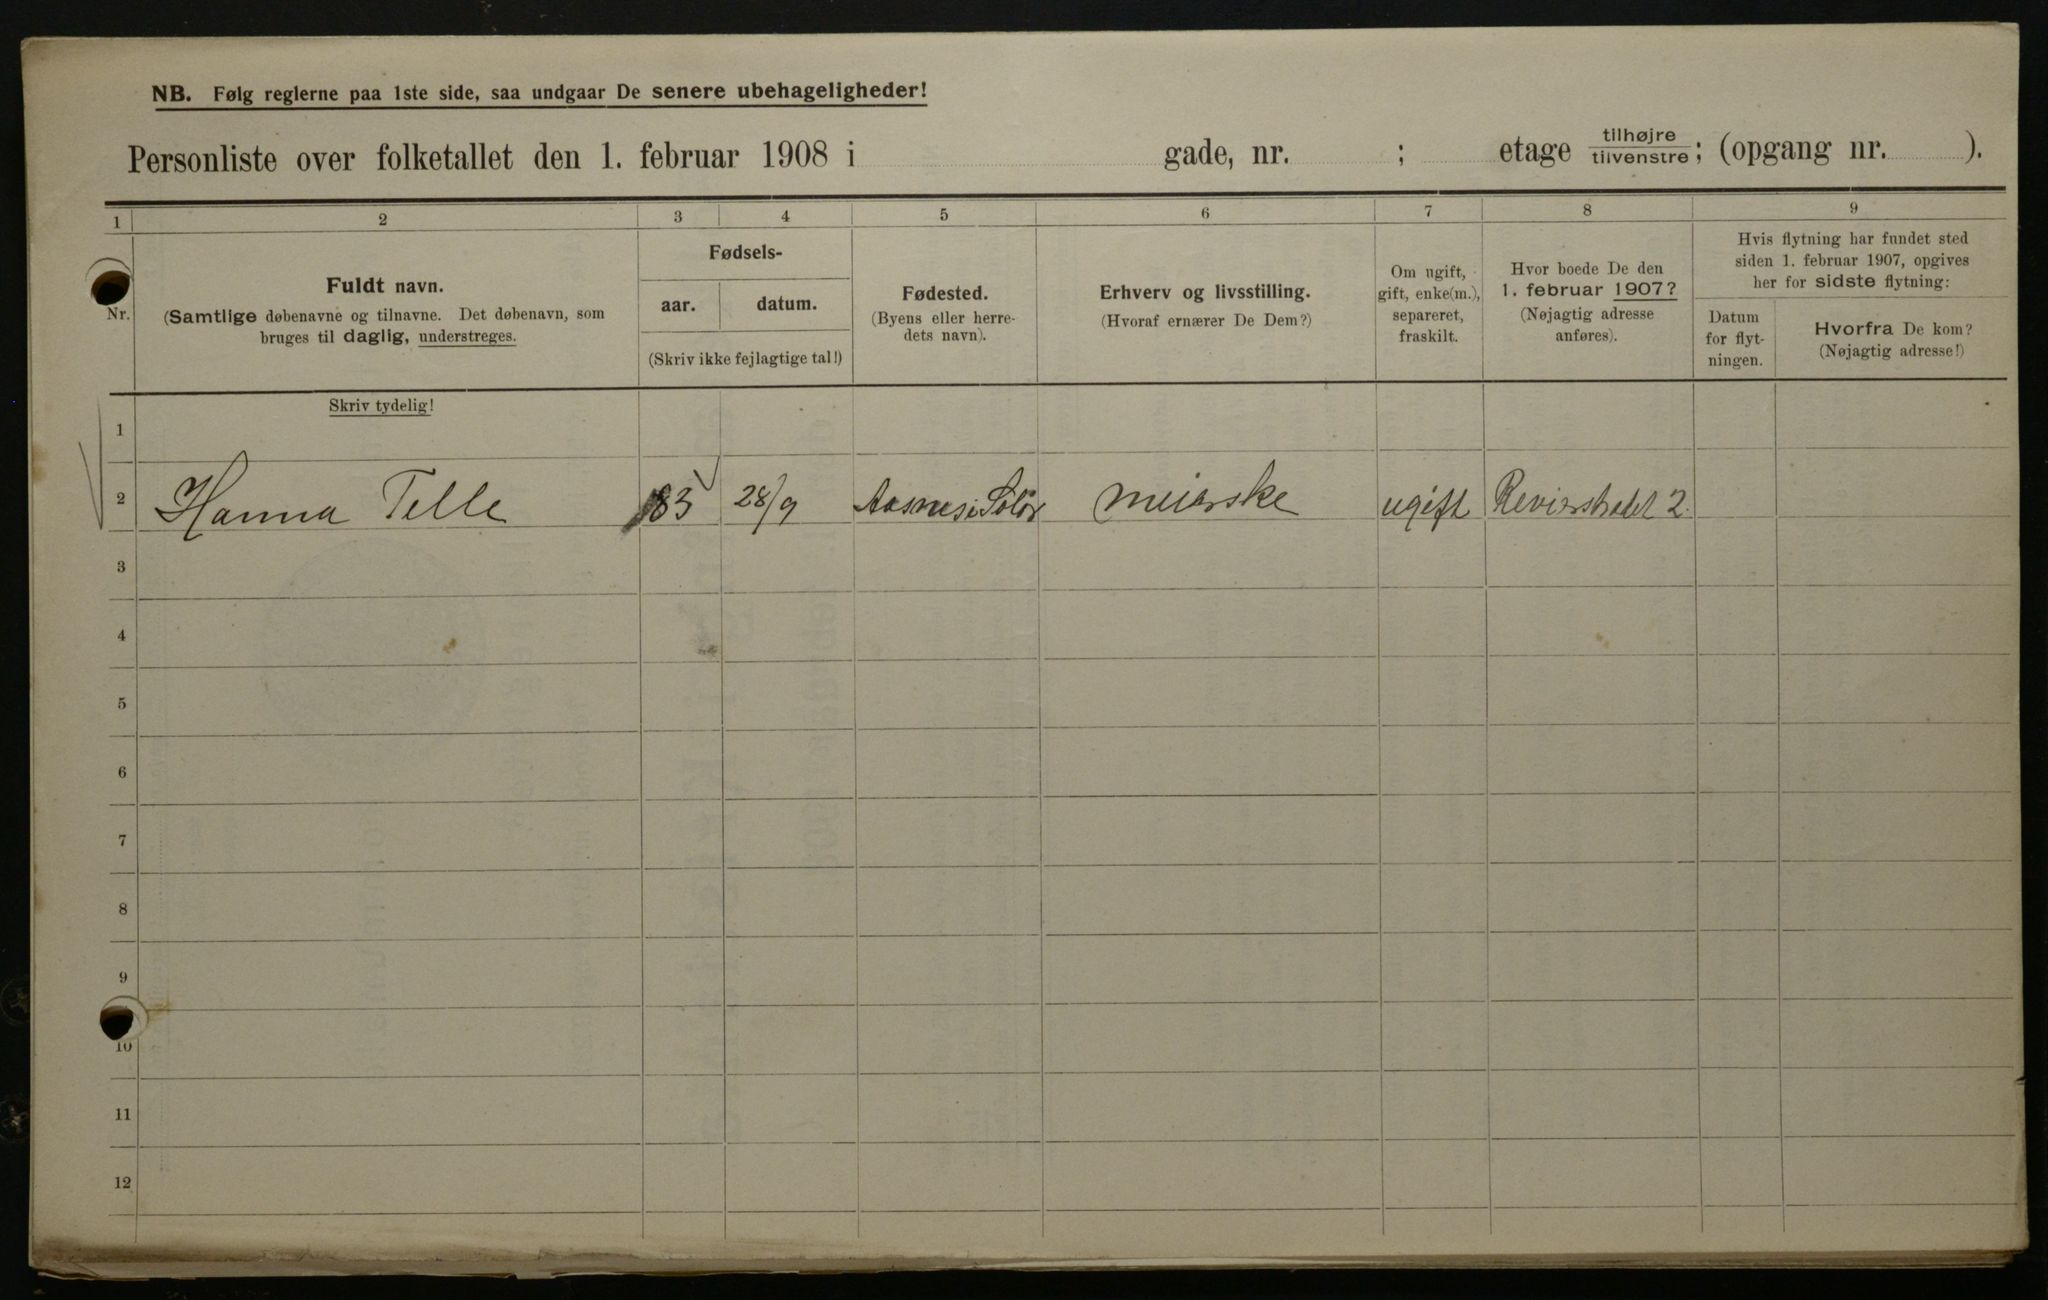 NB. Følg reglerne paa 1ste side, saa undgaar De senere ubehageligheder!
Personliste over folketallet den 1. februar 1908 i gade, nr. ; etage tilhøjre/tilvenstre; (opgang nr. ).
1 2 3 4 5 6 7 8 9
Nr.
Fuldt navn.
(Samtlige døbenavne og tilnavne. Det døbenavn, som
bruges til daglig, understreges.
Fødsels-
aar. datum.
(Skriv ikke fejlagtige tal!)
Fødested.
(Byens eller herre-
dets navn).
Erhverv og livsstilling.
(Hvoraf ernærer De Dem?)
Om ugift,
gift, enke(m.),
separeret,
fraskilt.
Hvor boede De den
1. februar 1907?
(Nøjagtig adresse
anføres).
Hvis flytning har fundet sted
siden 1. februar 1907, opgives
her for sidste flytning:
Datum
for flyt-
ningen.
Hvorfra De kom?
(Nøjagtig adresse!)
Skriv tydelig!
1
2 Hanna Telle 83 28/9 Aasnes i Solør meierske ugift Revierstredet 2.
3
4
5
6
7
8
9
10
11
12